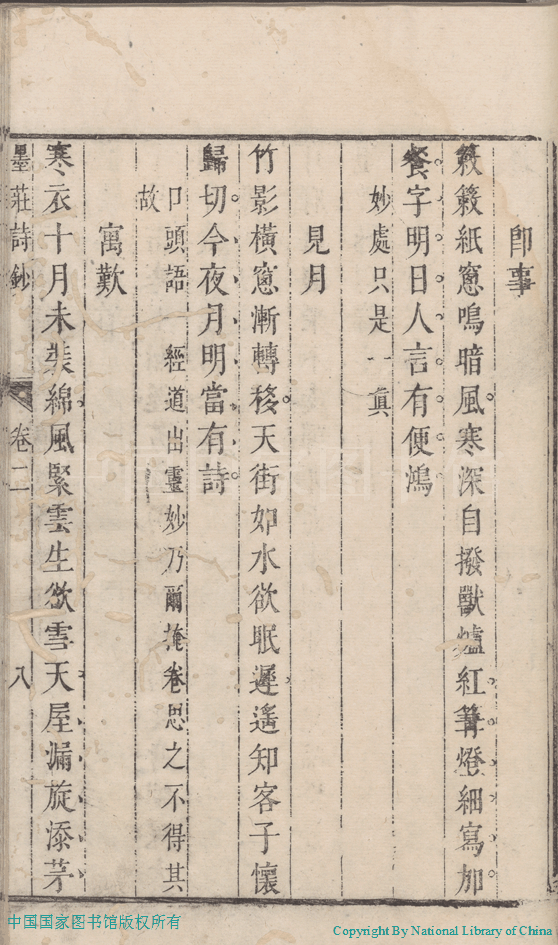 即事
簌簌紙窻鳴暗風寒深自撥獸爐紅篝燈細寫加
餐字明日人言有便鴻
妙處只是一眞
見月
竹影橫窻漸轉移天街如水欲眠遲遥知客子懷
歸切今夜月明當有詩
口頭語一經道出靈妙乃爾掩卷思之不得其
故
寓歎
寒衣十月未裝綿風緊雲生欲雪天屋漏旋添茅
墨莊詩鈔 卷二 八
中国国家图书馆版权所有
Copyright By National Library of China